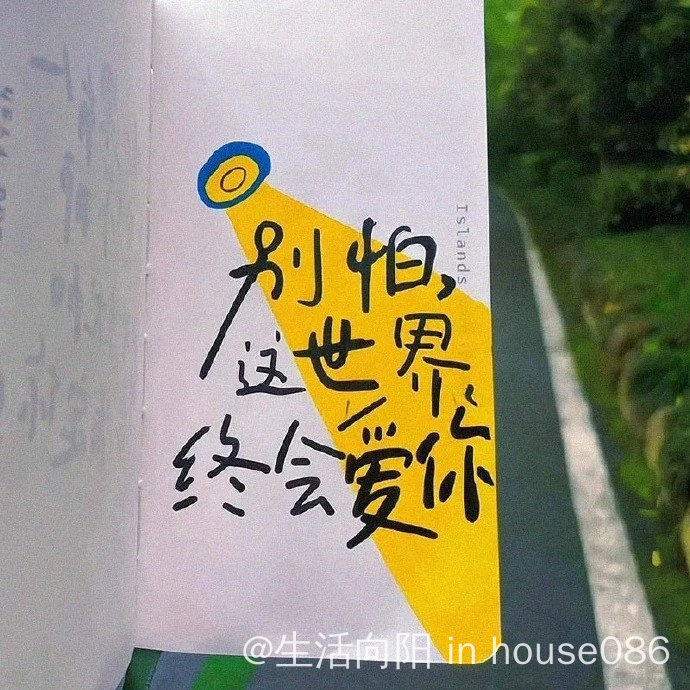 Islands
别怕,
这世界
终会爱你
@生活向阳 in house086